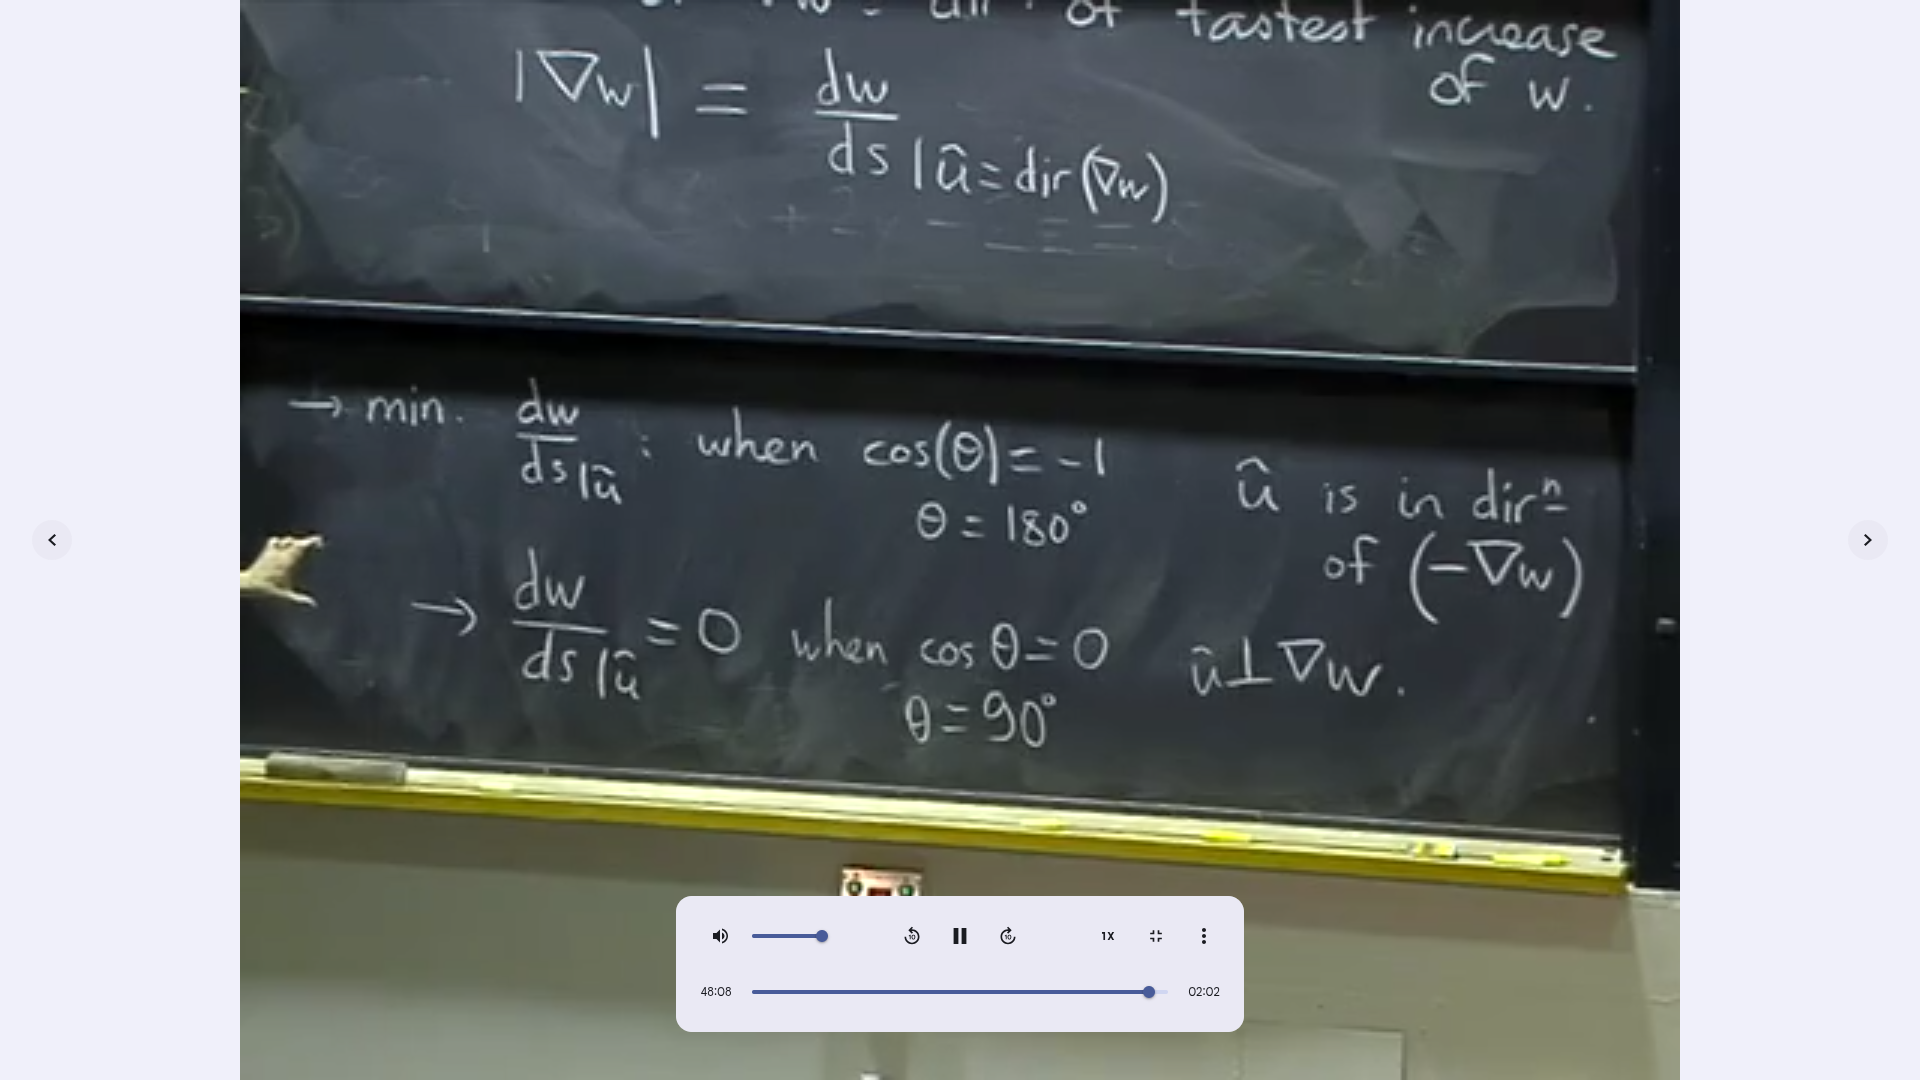 of fastest increase
of w.
|∇w| = dw/ds | û = dir(∇w)
→ min. dw/ds|û : when cos(θ) = -1
θ = 180°
û is in dirⁿ
of (-∇w)
→ dw/ds|û = 0 when cos θ = 0 û ⊥ ∇w.
θ = 90°
10
10
1X
48:08
02:02